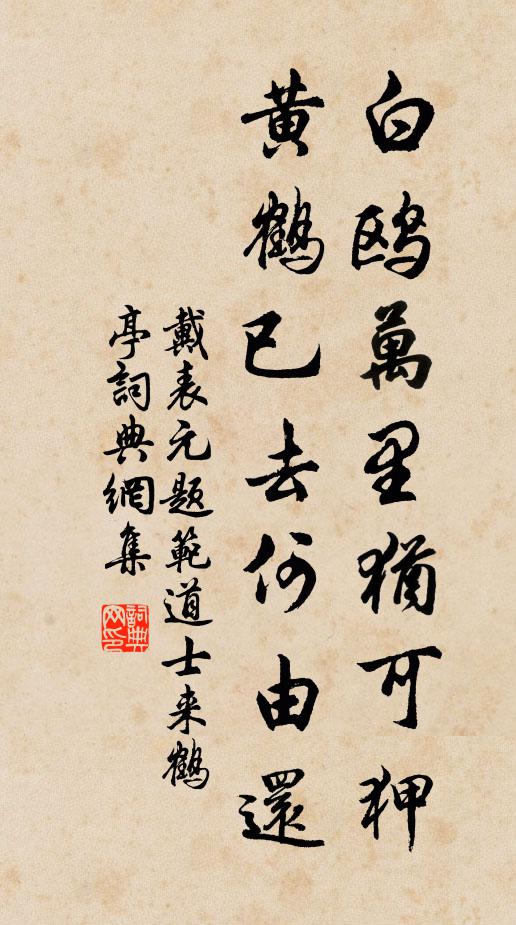 白鸥萬里猶可狎
黄鶴已去何由還
戴表元题範道士来鶴
亭詞典網集
詞典网印